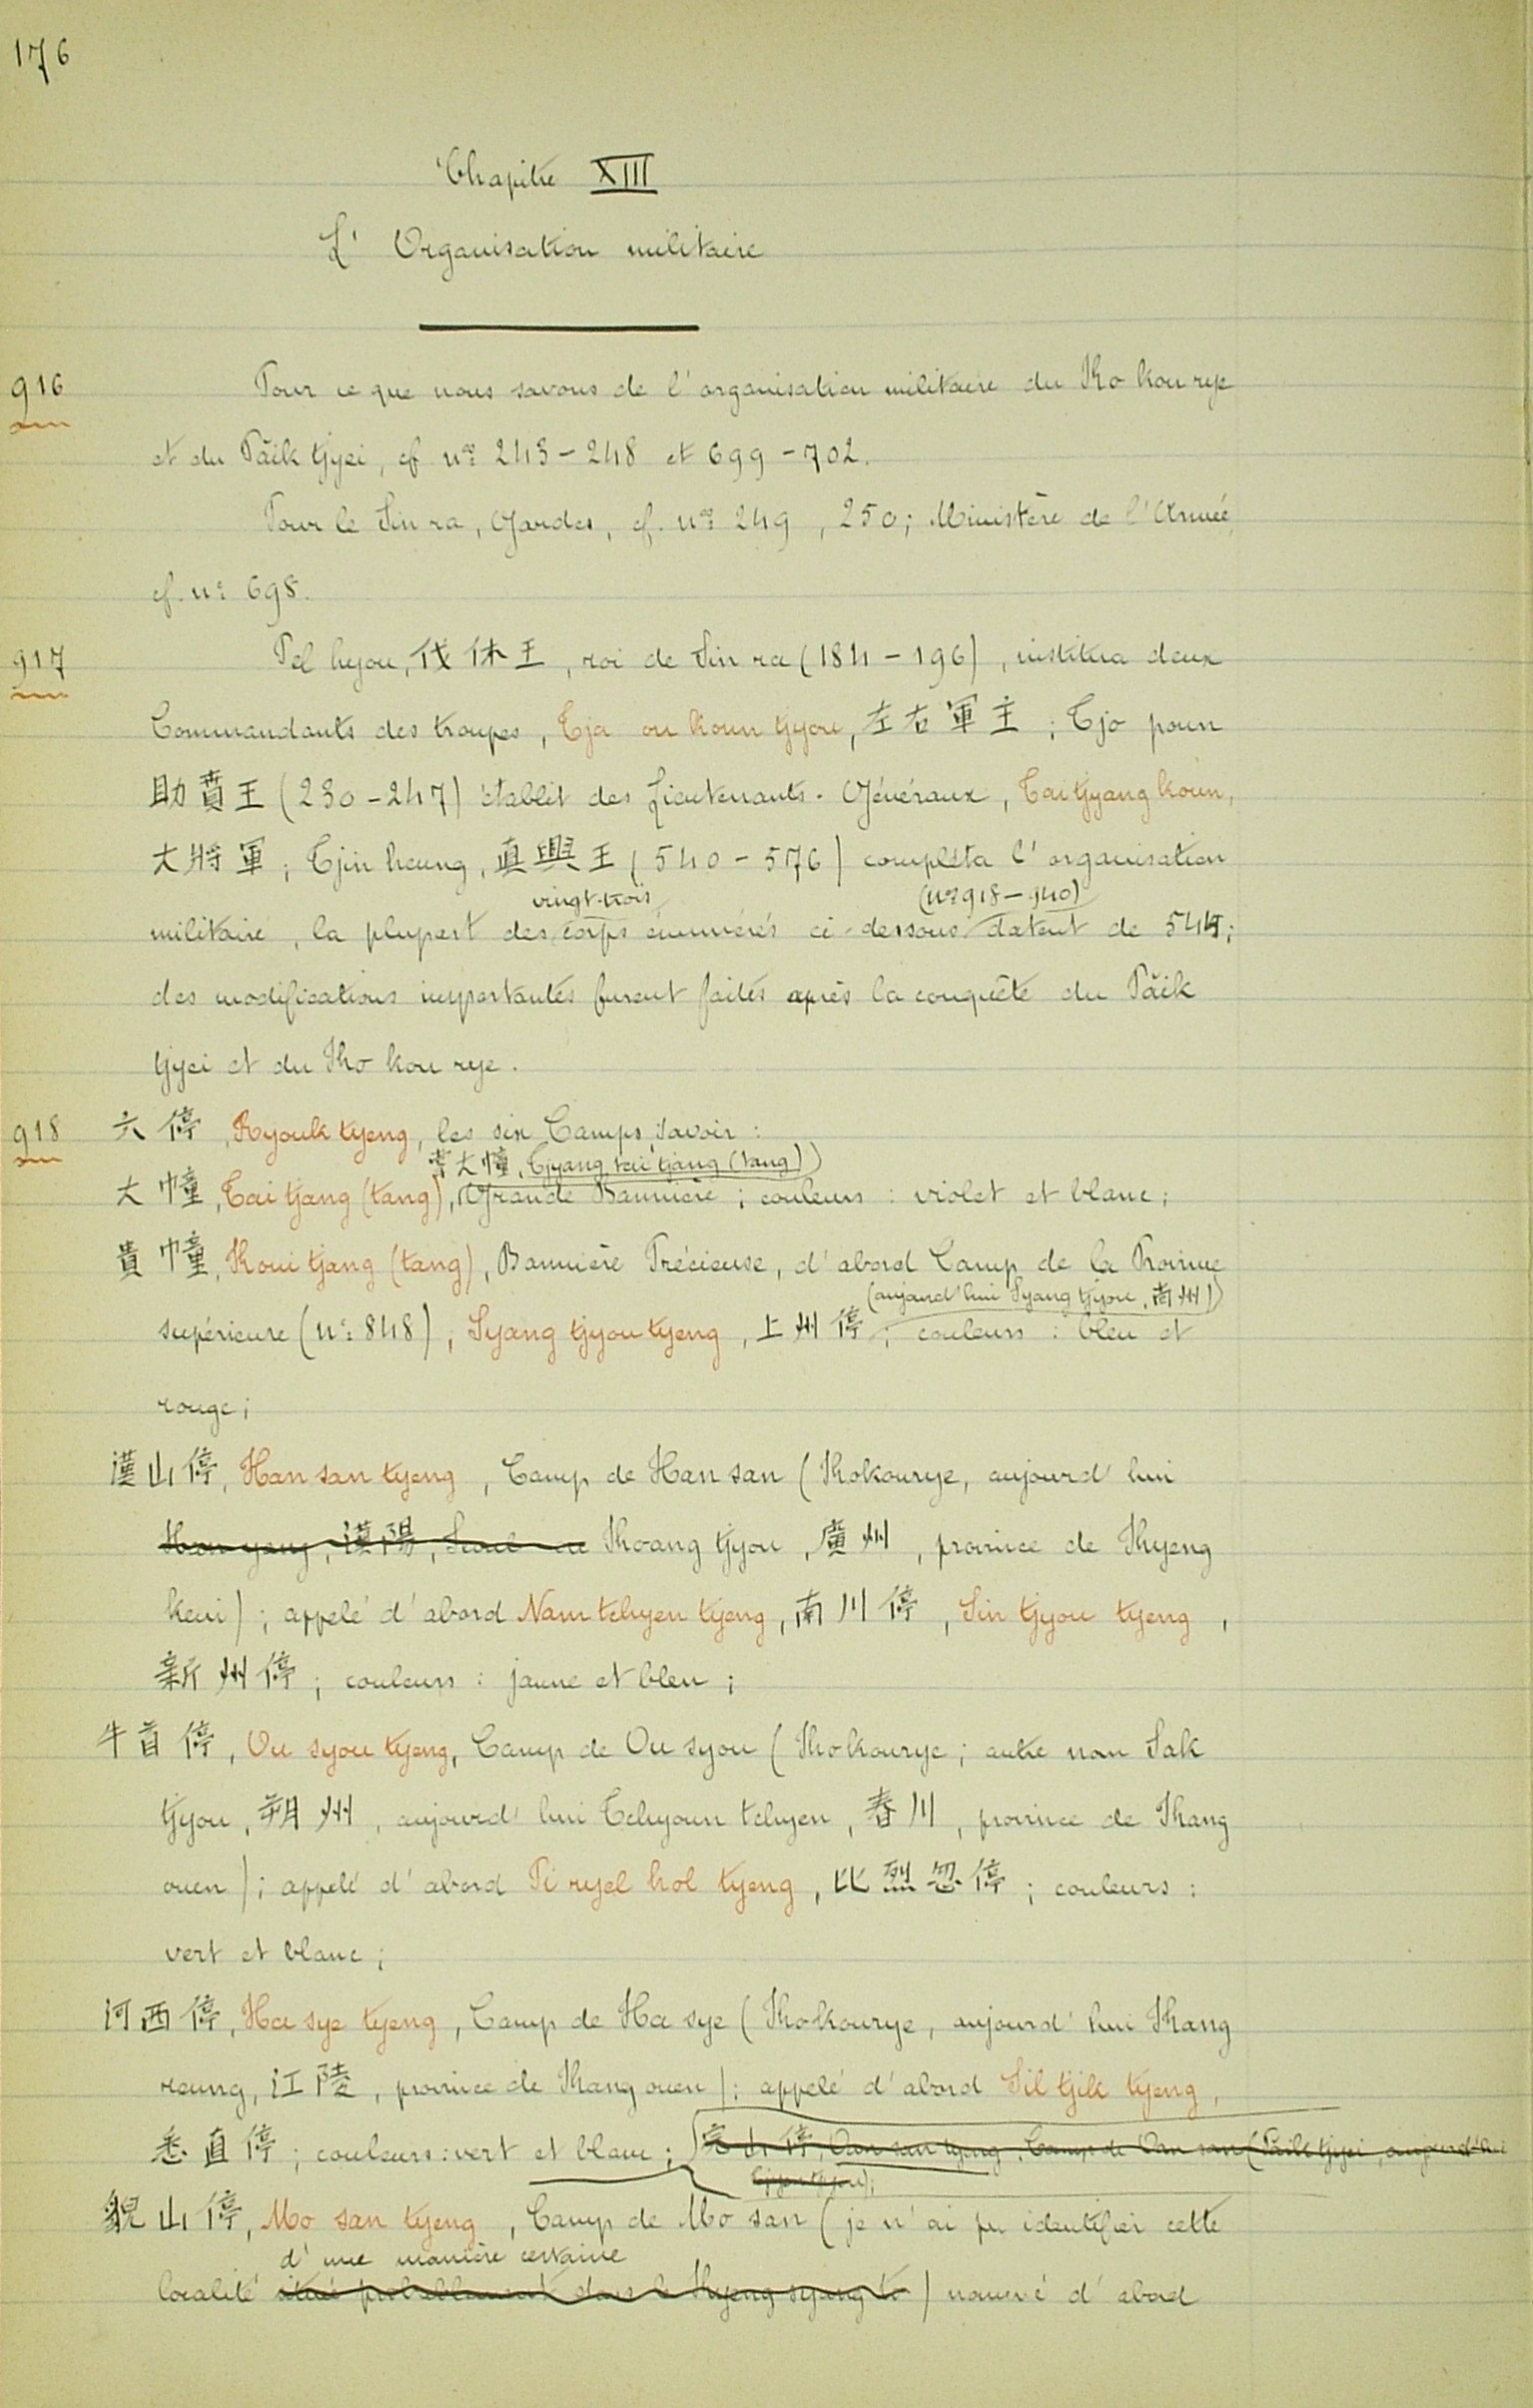 176
Chapitre XIII
L' Organisation militaire
916 Pour ce que nous savons de l'organisation militaire du Ko kou rye
et du Păik tjyei, cf nos 243-248 et 699-702.
Pour le Sin ra, Gardes, cf. nos 249, 250; Ministère de l'Armée,
cf. no 698.
917 Pel hyou, 伐休王, roi de Sin ra (184-196), institua deux
Commandants des troupes, Tja ou koun tjyou, 左右軍主; Tjo poun
助賁王 (230-247) établit des Lieutenants-Généraux, Tai tjyang koun,
大將軍; Tjin heung, 眞興王 (540-576) compléta l'organisation
vingt-trois (nos 918-940)
militaire, la plupart des corps énumérés ci-dessous datent de 544;
des modifications importantes furent faites après la conquête du Păik
tjyei et du Ko kou rye.
918 六停, Ryouk tyeng, les six Camps, savoir:
(大幢, Tjyang tai tjang (tang))
大幢, Tai tjang (tang), Grande Bannière; couleurs: violet et blanc;
貴幢, Koui tjang (tang), Bannière Précieuse, d'abord Camp de la Province
(aujourd'hui Syang tjyou, 州)
supérieure (no 848), Syang tjyou tyeng, 上州停; couleurs: bleu et
rouge;
漢山停, Han san tyeng, Camp de Han san (Kokourye, aujourd'hui
Han yang, 漢陽, Seoul ou Koang tjyou, 廣州, province de Kyeng
keui); appelé d'abord Nam tchyen tyeng, 南川停, Sin tjyou tyeng,
新州停; couleurs: jaune et bleu;
牛首停, Ou syou tyeng, Camp de Ou syou (Kokourye; autre nom Sak
tjyou, 朔州, aujourd'hui Tchyoun tchyen, 春川, province de Kang
ouen); appelé d'abord Pi ryel hol tyeng, 比烈忽停; couleurs:
vert et blanc;
河西停, Ha sye tyeng, Camp de Ha sye (Kokourye, aujourd'hui Kang
reung, 江陵, province de Kang ouen); appelé d'abord Sil tjik tyeng,
悉直停; couleurs: vert et blanc; 完山停, Oan san tyeng, Camp de Oan san (Păik tjyei, aujourd'hui
Tjyen tjyou);
貌山停, Mo san tyeng, Camp de Mo san (je n'ai pu identifier cette
d'une manière certaine
localité située probablement dans le Kyeng syang to) nommé d'abord